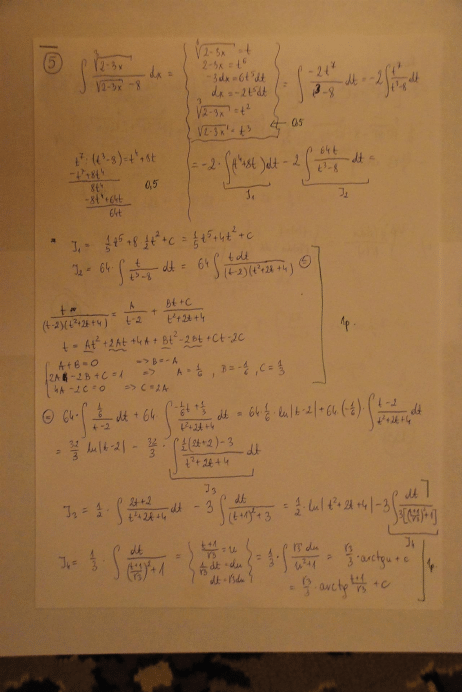 5
∫ ∛(2-3x) / (√(2-3x) - 8) dx = { ⁶√(2-3x) = t
2-3x = t⁶
-3dx = 6t⁵dt
dx = -2t⁵dt
∛(2-3x) = t²
√(2-3x) = t³ } = ∫ -2t⁷/(t³-8) dt = -2∫ t⁷/(t³-8) dt
0,5
t⁷ : (t³-8) = t⁴+8t
-t⁷+8t⁴
8t⁴
-8t⁴+64t
64t
0,5
= -2·∫(t⁴+8t)dt - 2∫ 64t/(t³-8) dt =
J₁ J₂
* J₁ = 1/5 t⁵ + 8 1/2 t² + c = 1/5 t⁵ + 4t² + c
J₂ = 64·∫ t/(t³-8) dt = 64∫ t dt/((t-2)(t²+2t+4)) =
t/((t-2)(t²+2t+4)) = A/(t-2) + (Bt+C)/(t²+2t+4)
t = At² + 2At + 4A + Bt² - 2Bt + Ct - 2C
{ A+B=0 => B=-A
2A-2B+C=1 => A=1/6, B=-1/6, C=1/3
4A-2C=0 => C=2A
1p
= 64·∫ (1/6)/(t-2) dt + 64·∫ (-1/6 t + 1/3)/(t²+2t+4) dt = 64·1/6·ln|t-2| + 64(-1/6)·∫ (t-2)/(t²+2t+4) dt
= 32/3 ln|t-2| - 32/3·∫ (1/2(2t+2)-3)/(t²+2t+4) dt
J₃
J₃ = 1/2·∫ (2t+2)/(t²+2t+4) dt - 3∫ dt/((t+1)²+3) = 1/2·ln|t²+2t+4| - 3∫ dt/(3[((t+1)/√3)²+1])
J₄
J₄ = 1/3·∫ dt/(((t+1)/√3)²+1) = { (t+1)/√3 = u
1/√3 dt = du
dt = √3du } = 1/3·∫ √3 du/(u²+1) = √3/3·arctgu + c
= √3/3·arctg (t+1)/√3 + c
1p